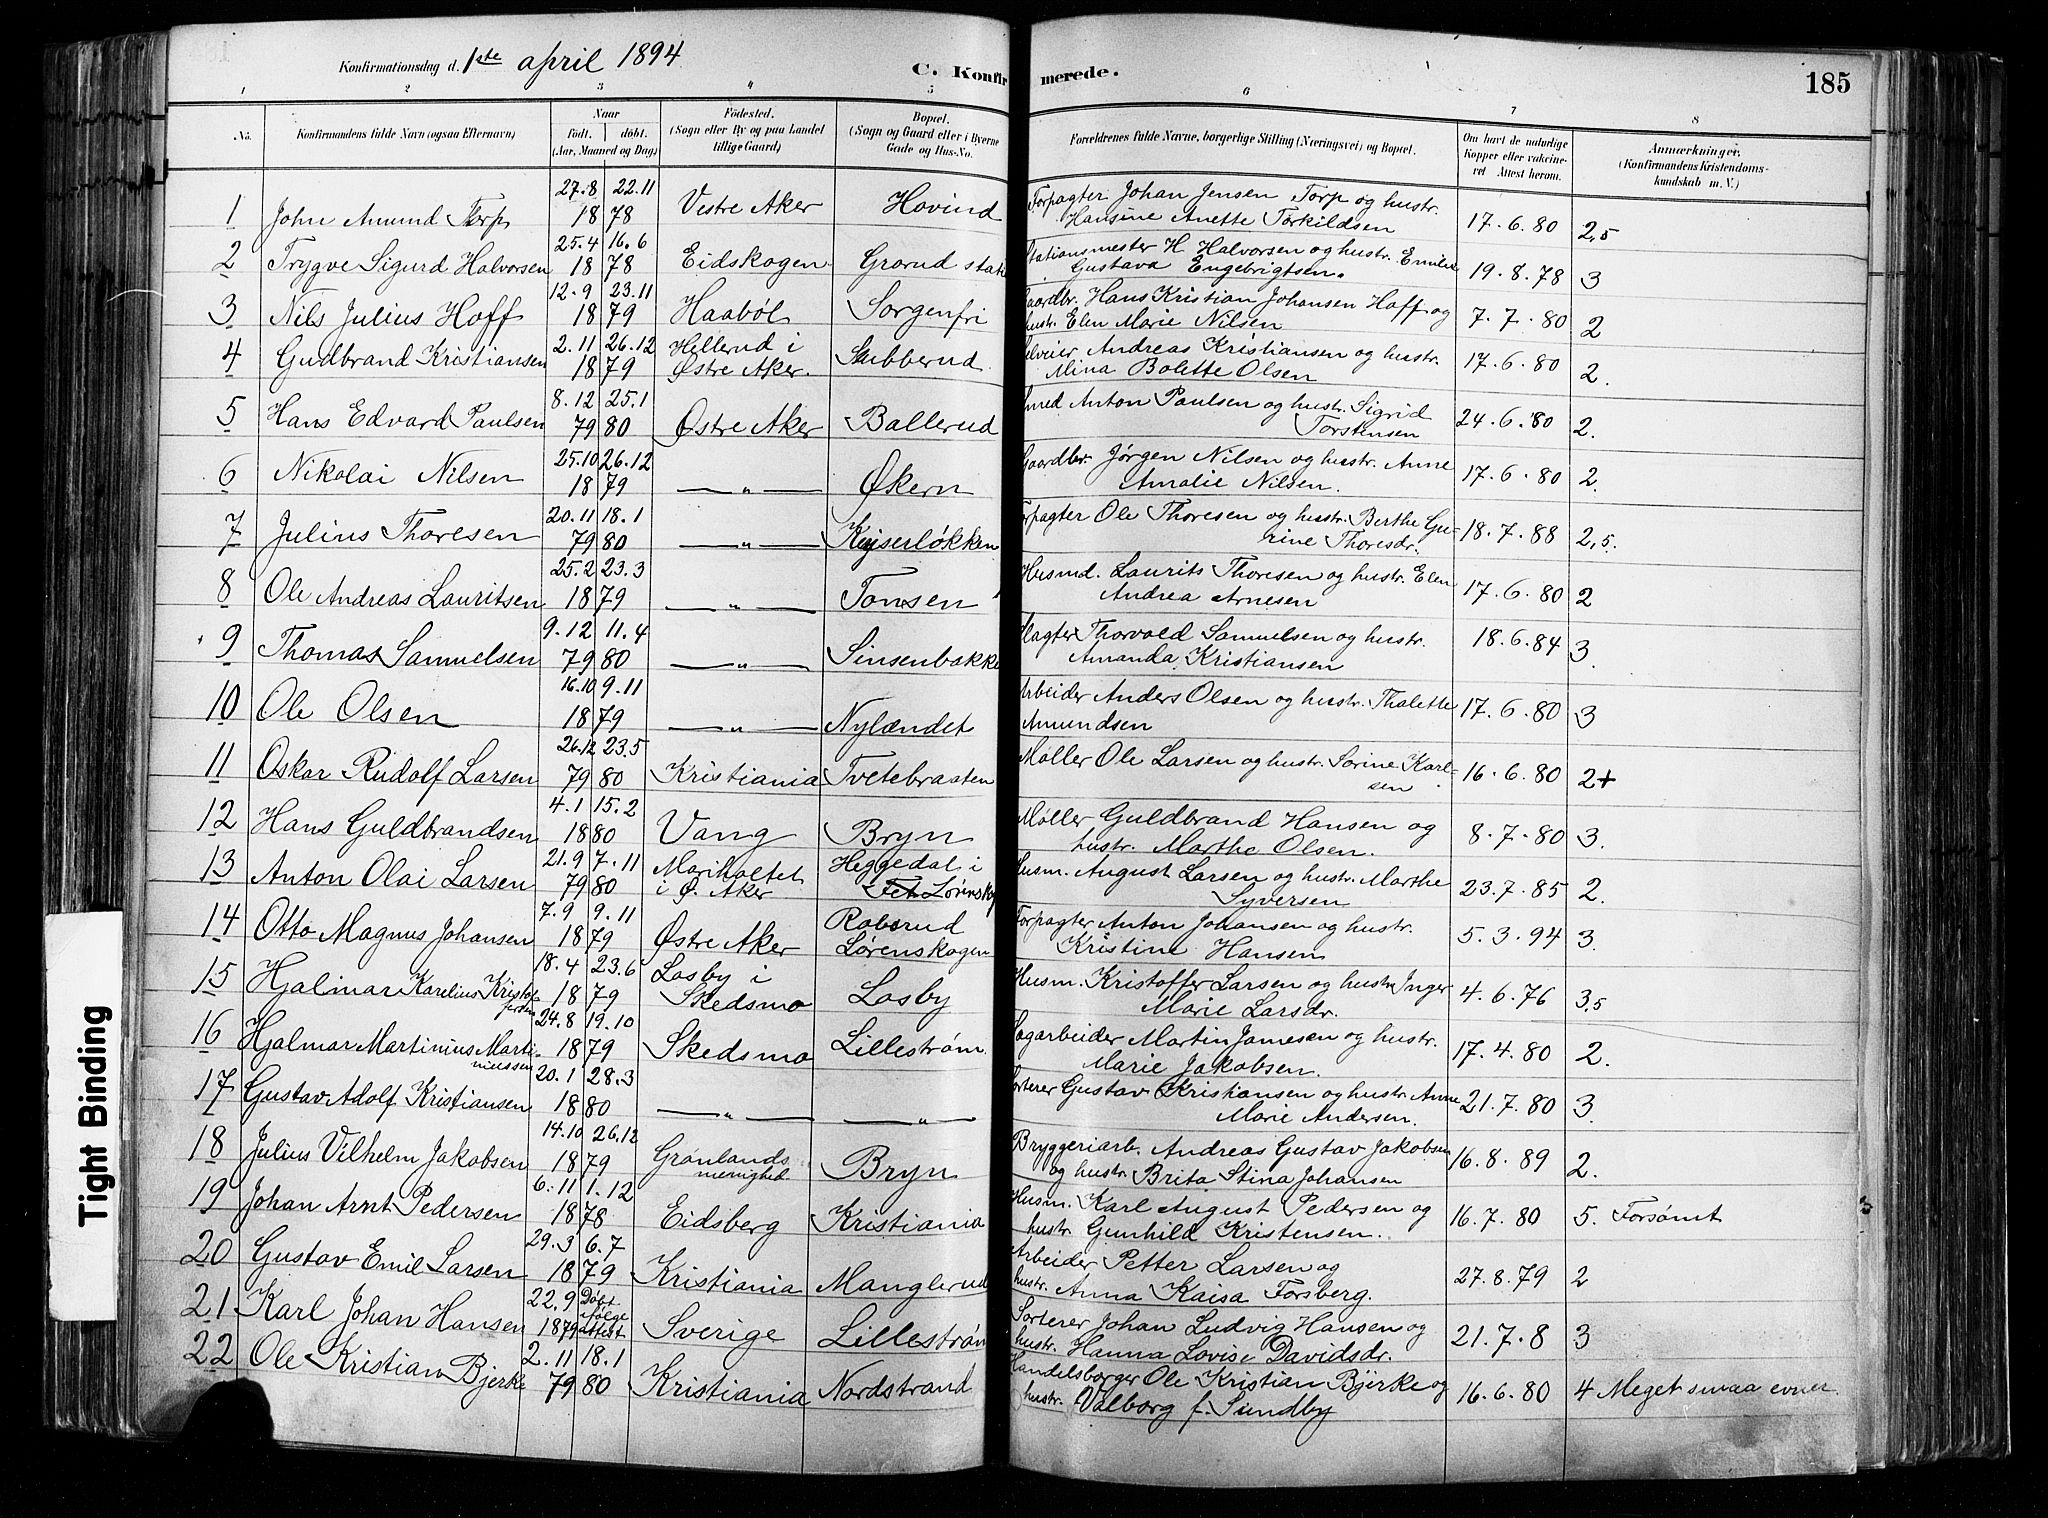 Konfirmationsdag d. 1ste april 1894
C. Konfirmerede.
185
1 2 3 4 5 6 7 8
No. Konfirmandens fulde Navn (ogsaa Efternavn) Naar født. døbt. (Aar, Maaned og Dag) Fødested. (Sogn eller By og paa Landet tillige Gaard) Bopæl. (Sogn og Gaard eller i Byerne Gade og Hus-No. Forældrenes fulde Navne, borgerlige Stilling (Næringsvei) og Bopæl. Om havt de naturlige Kopper eller vakcineret Attest herom. Anmærkninger. (Konfirmandens Kristendomskundskab m. V.)
1 John Amund Torp 27.8 22.11 1878 Vestre Aker Hovind Forpagter Johan Jensen Torp og hustr. Hansine Anette Torkildsen 17.6.80 2,5
2 Trygve Sigurd Halvorsen 25.4 16.6 1878 Eidskogen Grorud stat Stationsmester H. Halvorsen og hustr. Emilie Gustava Engebrigtsen. 19.8.78 3
3 Nils Julius Hoff 12.9 23.11 1879 Haabøl Sorgenfri Gaardbr. Hans Kristian Johansen Hoff og hustr. Elen Marie Nilsen 7.7.80 2
4 Gudbrand Kristiansen 2.11 26.12 1879 Hellerud i Østre Aker. Skubberud Andreas Kristiansen og hustr. Mina Bolette Olsen 17.6.80 2.
5 Hans Edvard Paulsen 8.12 25.1 79 80 Østre Aker Ballerud Smed Anton Paulsen og hustr. Sigrid Torstensen 24.6.80 2.
6 Nikolai Nilsen 25.10 26.12 1879 —„— Økern Gaardbr. Jørgen Nilsen og hustr. Anne Amalie Nilsen. 17.6.80 2.
7 Julius Thoresen 20.11 18.1 79 80 —„— Keiserløkken Forpagter Ole Thoresen og hustr. Berthe Gurine Thoresdr. 18.7.88 2,5.
8 Ole Andreas Lauritsen 25.2 23.3 1879 —„— Tonsen Husmd. Laurits Thoresen og hustr. Elen Andrea Arnesen 17.6.80 2
9 Thomas Samuelsen 9.12 11.4 79 80 —„— Sinsenbakke Slagter Thorvald Samuelsen og hustr. Amanda Kristiansen 18.6.84 3.
10 Ole Olsen 16.10 9.11 1879 —„— Nylændet Arbeider Anders Olsen og hustr. Thalette Amundsen 17.6.80 3
11 Oskar Rudolf Larsen 26.12 23.5 79 80 Kristiania Tvetebraaten Møller Ole Larsen og hustr. Sorine Karlsen 16.6.80 2+
12 Hans Guldbrandsen 4.1 15.2 1880 Vang Bryn Møller Guldbrand Hansen og hustr. Marthe Olsen. 8.7.80 3.
13 Anton Olai Larsen 21.9 7.11 79 80 Mariholtet i Ø. Aker Heggedal i Fet Lørenskog Husm. August Larsen og hustr. Marthe Syversen 23.7.85 2.
14 Otto Magnus Johansen 7.9 9.11 1879 Østre Aker Robsrud Lørenskogen Forpagter Anton Johansen og hustr. Kristine Hansen 5.3.94 3.
15 Hjalmar Karelius Kristofersen 18.4 23.6 1879 Losby i Skedsmo Losby Husm. Kristoffer Larsen og hustr. Inger Marie Larsdr. 4.6.76 3,5
16 Hjalmar Martinius Martiniussen 24.8 19.10 1879 Skedsmo Lillestrøm Sagarbeider Martin Jamesen og hustr. Marie Jakobsen. 17.4.80 2.
17 Gustav Adolf Kristiansen 20.1 28.3 1880 —„— —„— Sorterer Gustav Kristiansen og hustr. Anne Marie Andersen. 21.7.80 3.
18 Julius Vilhelm Jakobsen 14.10 26.12 1879 Grønlands menighed Bryn Bryggeriarb. Andreas Gustav Jakobsen og hustr. Brita Stina Johansen 16.8.89 2.
19 Johan Arnt Pedersen 6.11 1.12 1878 Eidsberg Kristiania Husm. Karl August Pedersen og hustr. Gunhild Kristensen. 16.7.80 5. Forsømt
20 Gustav Emil Larsen 29.3 6.7 1879 Kristiania Manglerud Arbeider Petter Larsen og hustr. Anna Kaisa Forsberg. 27.8.79 2
21 Karl Johan Hansen 22.9 1879 Døbt ifølge attest Sverige Lillestrøm Sorterer Johan Ludvig Hansen og hustr. Hanna Lovise Davidsdr. 21.7.8 3
22 Ole Kristian Bjerke 2.11 18.1 79 80 Kristiania Nordstrand Handelsborger Ole Kristian Bjerke og hustr. Valborg f. Sundby 16.6.80 4 Meget smaa evner
Tight Binding